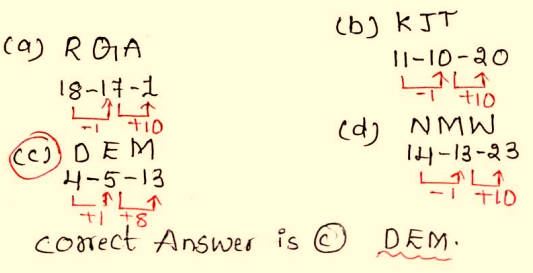 (a) R Q A
18-17-1
-1 +10
(b) KJT
11-10-20
-1 +10
(c) D E M
4-5-13
+1 +8
(d) NMW
14-13-23
-1 +10
correct Answer is (c) DEM.